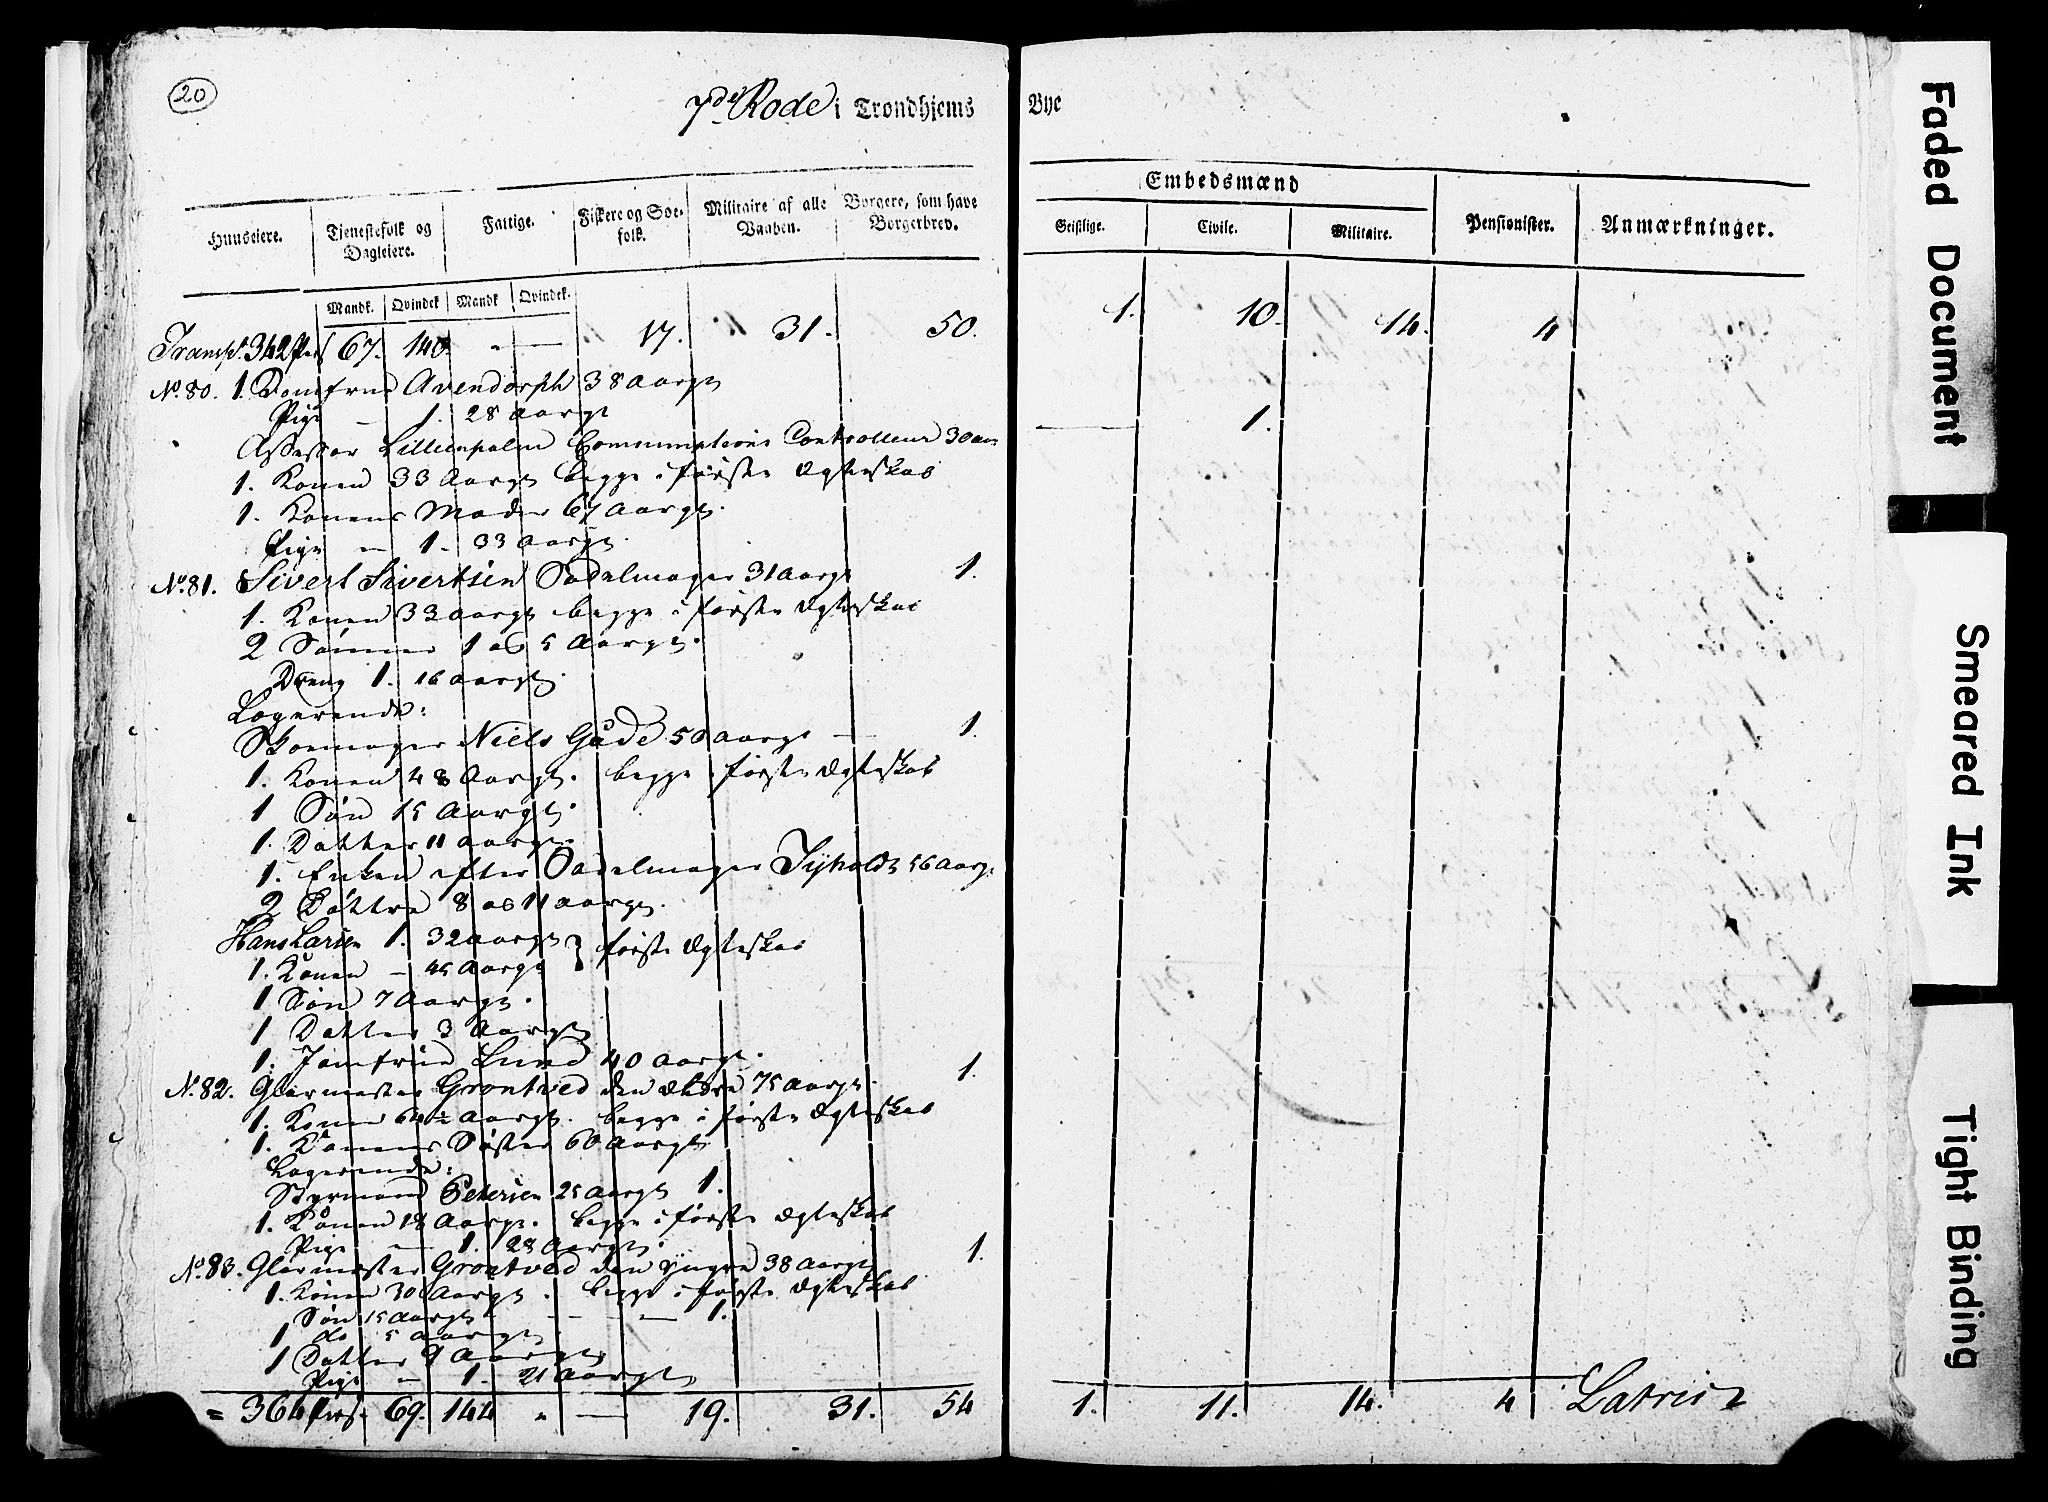 20
7de Rode i Trondhjems Bye
Huuseiere.
Tjenestefolk og Dagleiere.
Fattige.
Fiskere og Søefolk.
Militaire af alle Vaaben.
Borgere, som have Borgerbrev.
Embedsmænd
Geistlige.
Civile.
Militaire.
Pensionister.
Anmærkninger.
Mandk. Qvindek Mandk Qvindek.
Transpt. 342 Pers 67. 140. " — 17. 31. 50. 1. 10. 14. 4
No. 80. 1. Jomfrue Avendorph 38 Aarge
Pige — 1. 28 Aarge
Assessor Lillienpalm Consumptions Controlleur 30 aar — 1.
1. Konen 33 Aarge begge i første Ægteskab
1. Konens Moder 67 Aarge.
Pige — 1. 33 Aarge.
No. 81. Sivert Sivertsen Sadelmager 31 Aarge 1.
1. Konen 32 aarge begge i første Ægteskab
2 Sønner 1 og 5 Aarge.
Dreng 1. 16 aarge.
Logerende:
Skoemager Niels Gude 50 aarge — 1.
1. Konen 48 Aarge. begge i første Ægteskab
1 Søn 15 Aarge.
1. Datter 11 aarge.
1. Enken efter Sadelmager 56 Aarge
2 Døttre 8 og 11 aarge.
Hans Larsen 1. 32 aarge } første Ægteskab
1. Konen — 45 Aarge
1 Søn 7 Aarge.
1 Datter 3 Aarge
1. Jomfrue Lund 40 aarge.
No. 82. Glarmester Grontved den ældre 75 Aarge. 1.
1. Konen 64½ Aarge. begge i første Ægteskab
1. Konens Søster 60 Aarge
Logerende:
Styrmand Petersen 25 Aarge 1.
1. Konen 18 Aarge. begge i første Ægteskab
Pige — 1. 28 Aarge.
No. 83. Glarmester Grontved den yngre 38 Aarge 1.
1. Konen 30 Aarge. begge i første Ægteskab
Søn 15 Aarge — — — 1.
1 do 5 aarge
1 Datter 9 Aarge
Pige — 1. 21 Aarge
= 364 Pers. 69. 144 " — 19. 31. 54 1. 11. 14. 4 Latris
Faded Document
Smeared Ink
Tight Binding